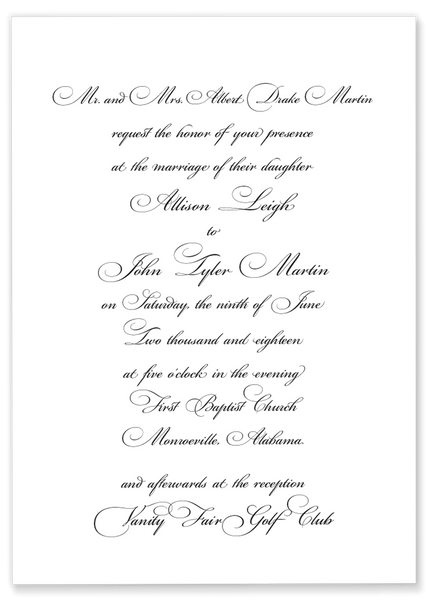 Mr. and Mrs. Albert Drake Martin
request the honor of your presence
at the marriage of their daughter
Allison Leigh
to
John Tyler Martin
on Saturday, the ninth of June
Two thousand and eighteen
at five o'clock in the evening
First Baptist Church
Monroeville, Alabama.
and afterwards at the reception
Vanity Fair Golf Club